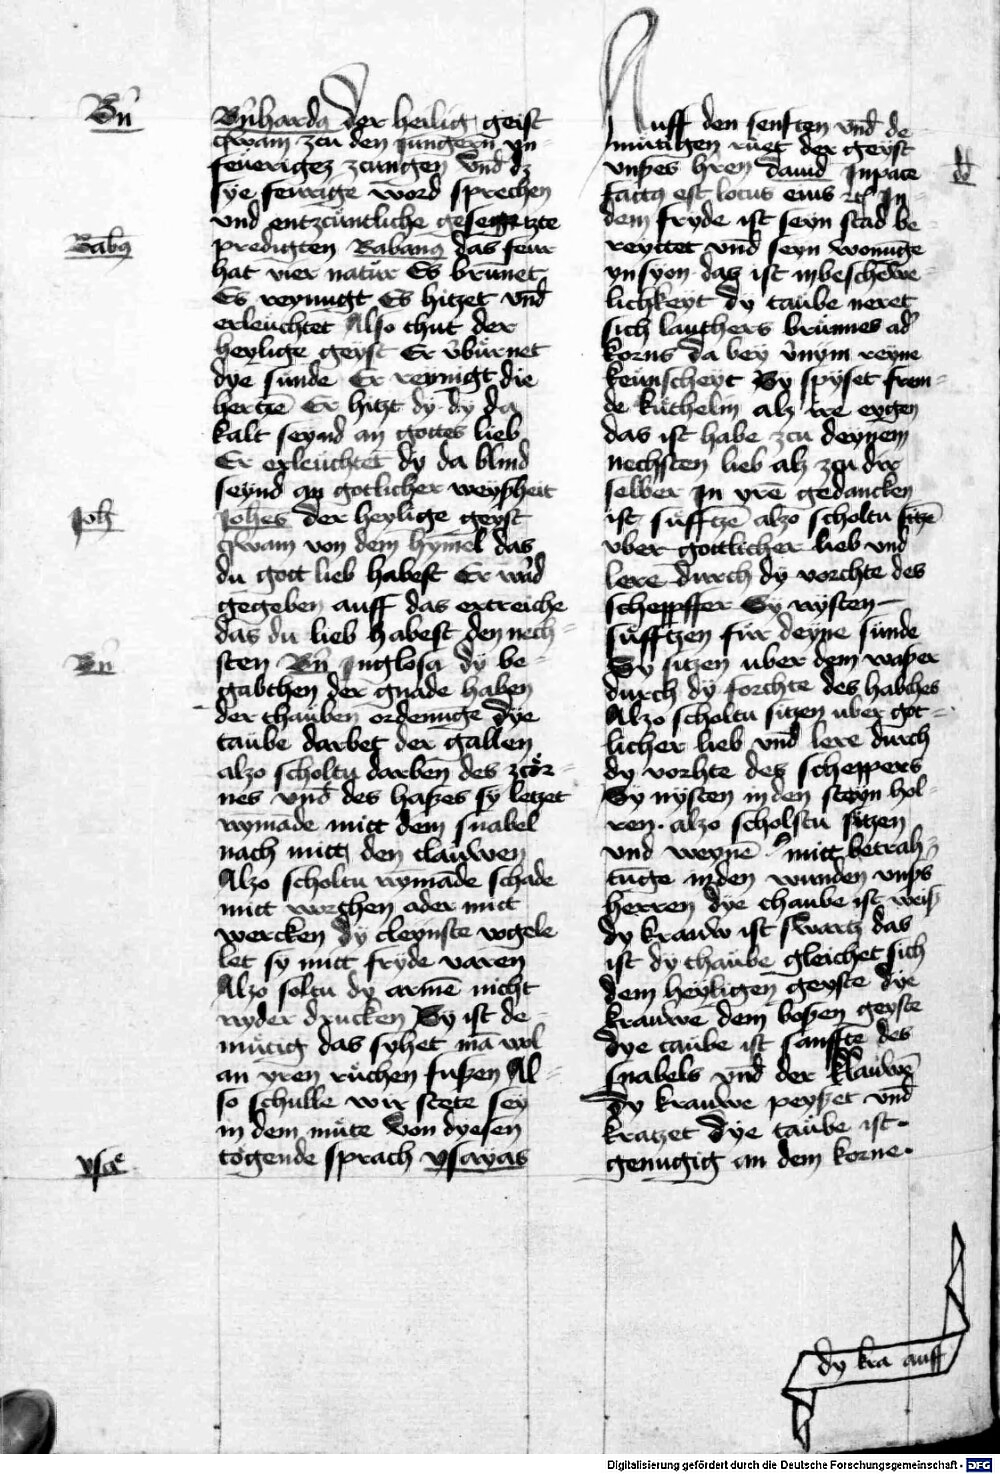 Bn̄
Bn̄hardꝯ der heilig geist
qwam zcu den Jungern yn
feuerigez zcungen vnd dz
sye feurige word sprechen
vnd entzcüntliche gesegetzte
Rabꝯ
predigten Rabanꝯ das feur
hat vier natur Es brunet
Es reynigt Es hitzet vnd
erleuchtet Also thut der
heylige geyst Er vburnet
dye sunde Er reynigt die
hertzē Er hitzt dy dy da
kalt seynd an gottes lieb
Er erleuchtet dy da blind
seynd an gotlicher weyßheit
Joh
Johēs der heylige geyst
qwam von dem hymel das
du gott lieb habest Er wud
gegeben auff das ertreiche
das du lieb habest den nech=
Bn̄
sten Bn̄ Jn glosa dy be=
gabthen der gnade haben
der thauben ordenunge dye
taube darbet der gallen
alzo scholtu darben des zcor=
nes vnd des haßes sy letzet
nymāde mitt dem snabel
nach mitt den clauwen
Alzo scholtu nymāde schade
mitt worthen ader mitt
wercken dy cleynste vogele
let sy mitt fryde varen
Alzo soltu dy armē nicht
nyder drucken Sy ist de=
mutig das syhet mā wol
an yren ruchen fußen Al=
so schulle wir stete sey
in dem mute von dyesen
ysae
togende sprach ysayas
Auff den senften vnd de
mutigen ruet der geyst
vnßes hren dauid Jn pace
factꝯ est locus eius ⁊c Jn
dem fryde ist seyn stad be=
reyttet vnd seyn wonuge
yn syon das ist in beschewe=
lichkeyt dy taube neret
sich lauthers brunnes ad
korns da bey vnym reyne
keunscheyt Sy spyset frem=
de kuthelin alz ire eygen
das ist habe zcu deynem
nechsten lieb alz zcu dir
selber Jn yrē gedancken
ist sufftzē alzo scholtu sitzē
vber gottlicher lieb vnd
lere durch dy vorchte des
schepffer Sy nysten
sufftzen für deyne sunde
Sy sitzen uber dem waßer
durch dy forchte des habches
Alzo scholtu sitzen uber got=
licher lieb vnd lere durch
dy vorhte des scheppers
Sy nysten in den steyn hol=
ren. alzo scholstu sitzen
vnd weynē mitt betrah=
tuge in den wunden vnßs
herren dye thaube ist weiß
dy krauw ist swartz das
ist dy thaube gleichet sich
dem heyligen geyste dye
krauwe dem boßen geyste
dye taube ist sanffte des
snabels vnd der klauwē
dy krauwe peyßet vnd
kratzet dye taube ist
genugig an dem korne.
dy kra auff
Digitalisierung gefördert durch die Deutsche Forschungsgemeinschaft - DFG